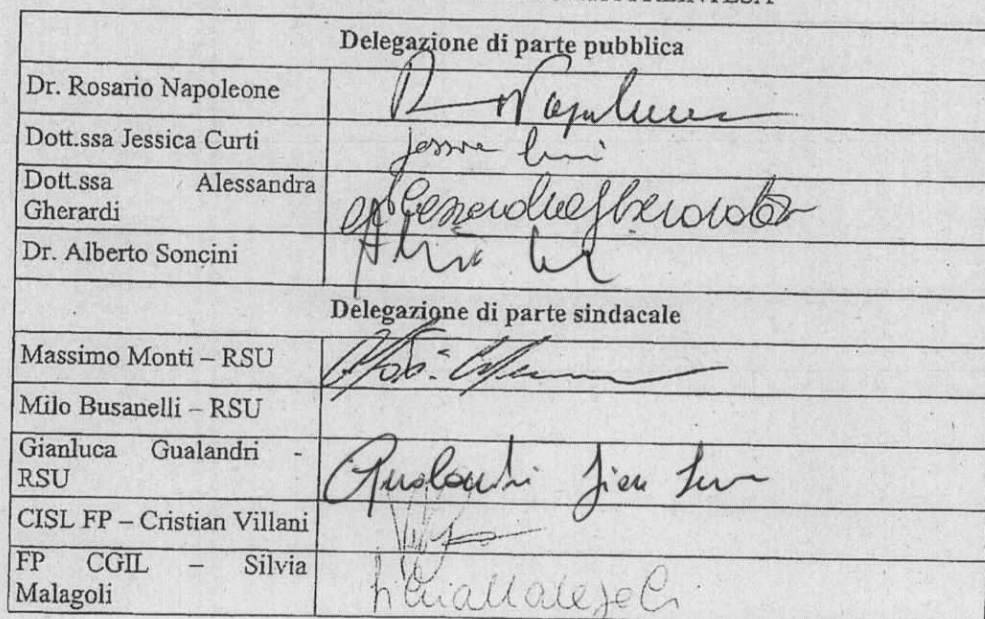 Delegazione di parte pubblica
Dr. Rosario Napoleone
Dott.ssa Jessica Curti
Dott.ssa Alessandra
Gherardi
Alessandra Gherardi
Dr. Alberto Soncini
Delegazione di parte sindacale
Massimo Monti – RSU
Milo Busanelli – RSU
Gianluca Gualandri -
RSU
Gualandri Gian Luca
CISL FP – Cristian Villani
FP CGIL – Silvia
Malagoli
Silvia Malagoli